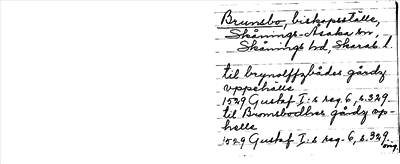 Brunsbo, biskopssställe,
Skånings-Åsaka sn,
Skånings hd, Skarab. l.
til brynolffzbådes gårdz
vppehälle
1529 Gustaf I:s reg. 6, s. 329.
til Bromsbodhes gårdz vp-
helle
1529 Gustaf I:s reg. 6, s. 329.
orig.